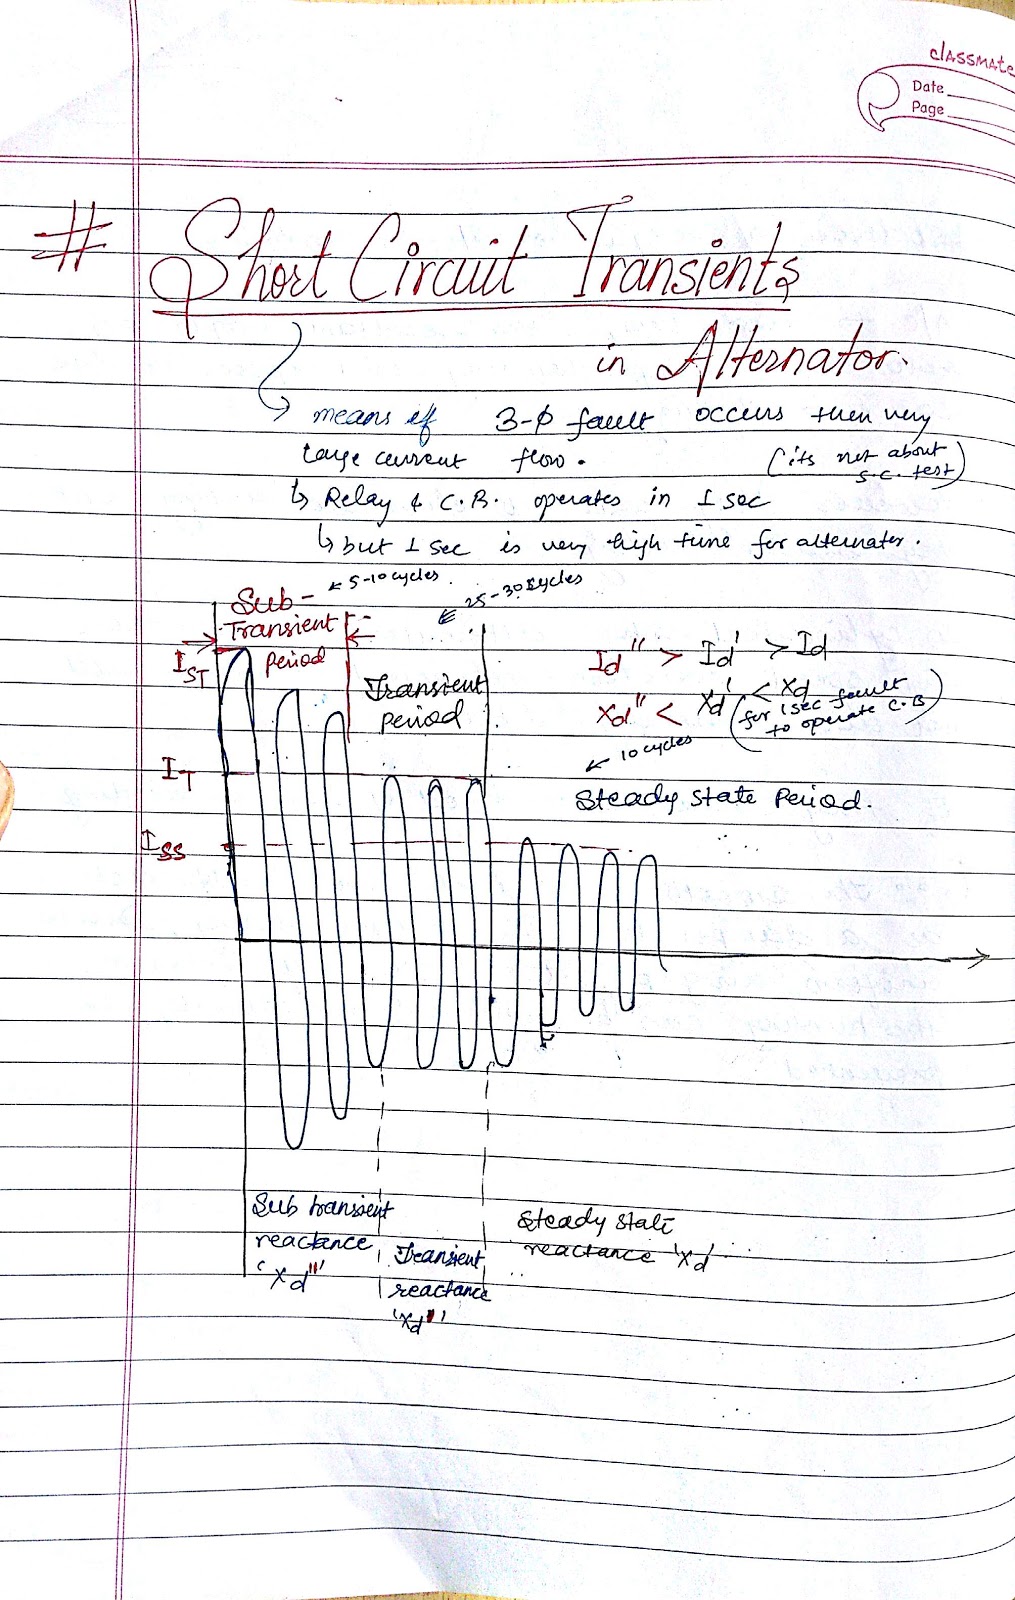 classmate
Date
Page
# Short Circuit Transients
in Alternator.
means if 3-φ fault occurs then very
large current flow. (its not about
s.c. test)
↳ Relay & C.B. operates in 1 sec
↳ but 1 sec is very high time for alternater.
← 5-10 cycles.
25-30 cycles
Sub-
Transient
Period
IST
Transient
period
Id" > Id' > Id
Xd" < Xd' < Xd
(for 1 sec fault
to operate C.B)
← 10 cycles
Steady State Period.
IT
ISS
Sub transient
reactance
'Xd"'
Transient
reactance
Steady state
reactance 'Xd'